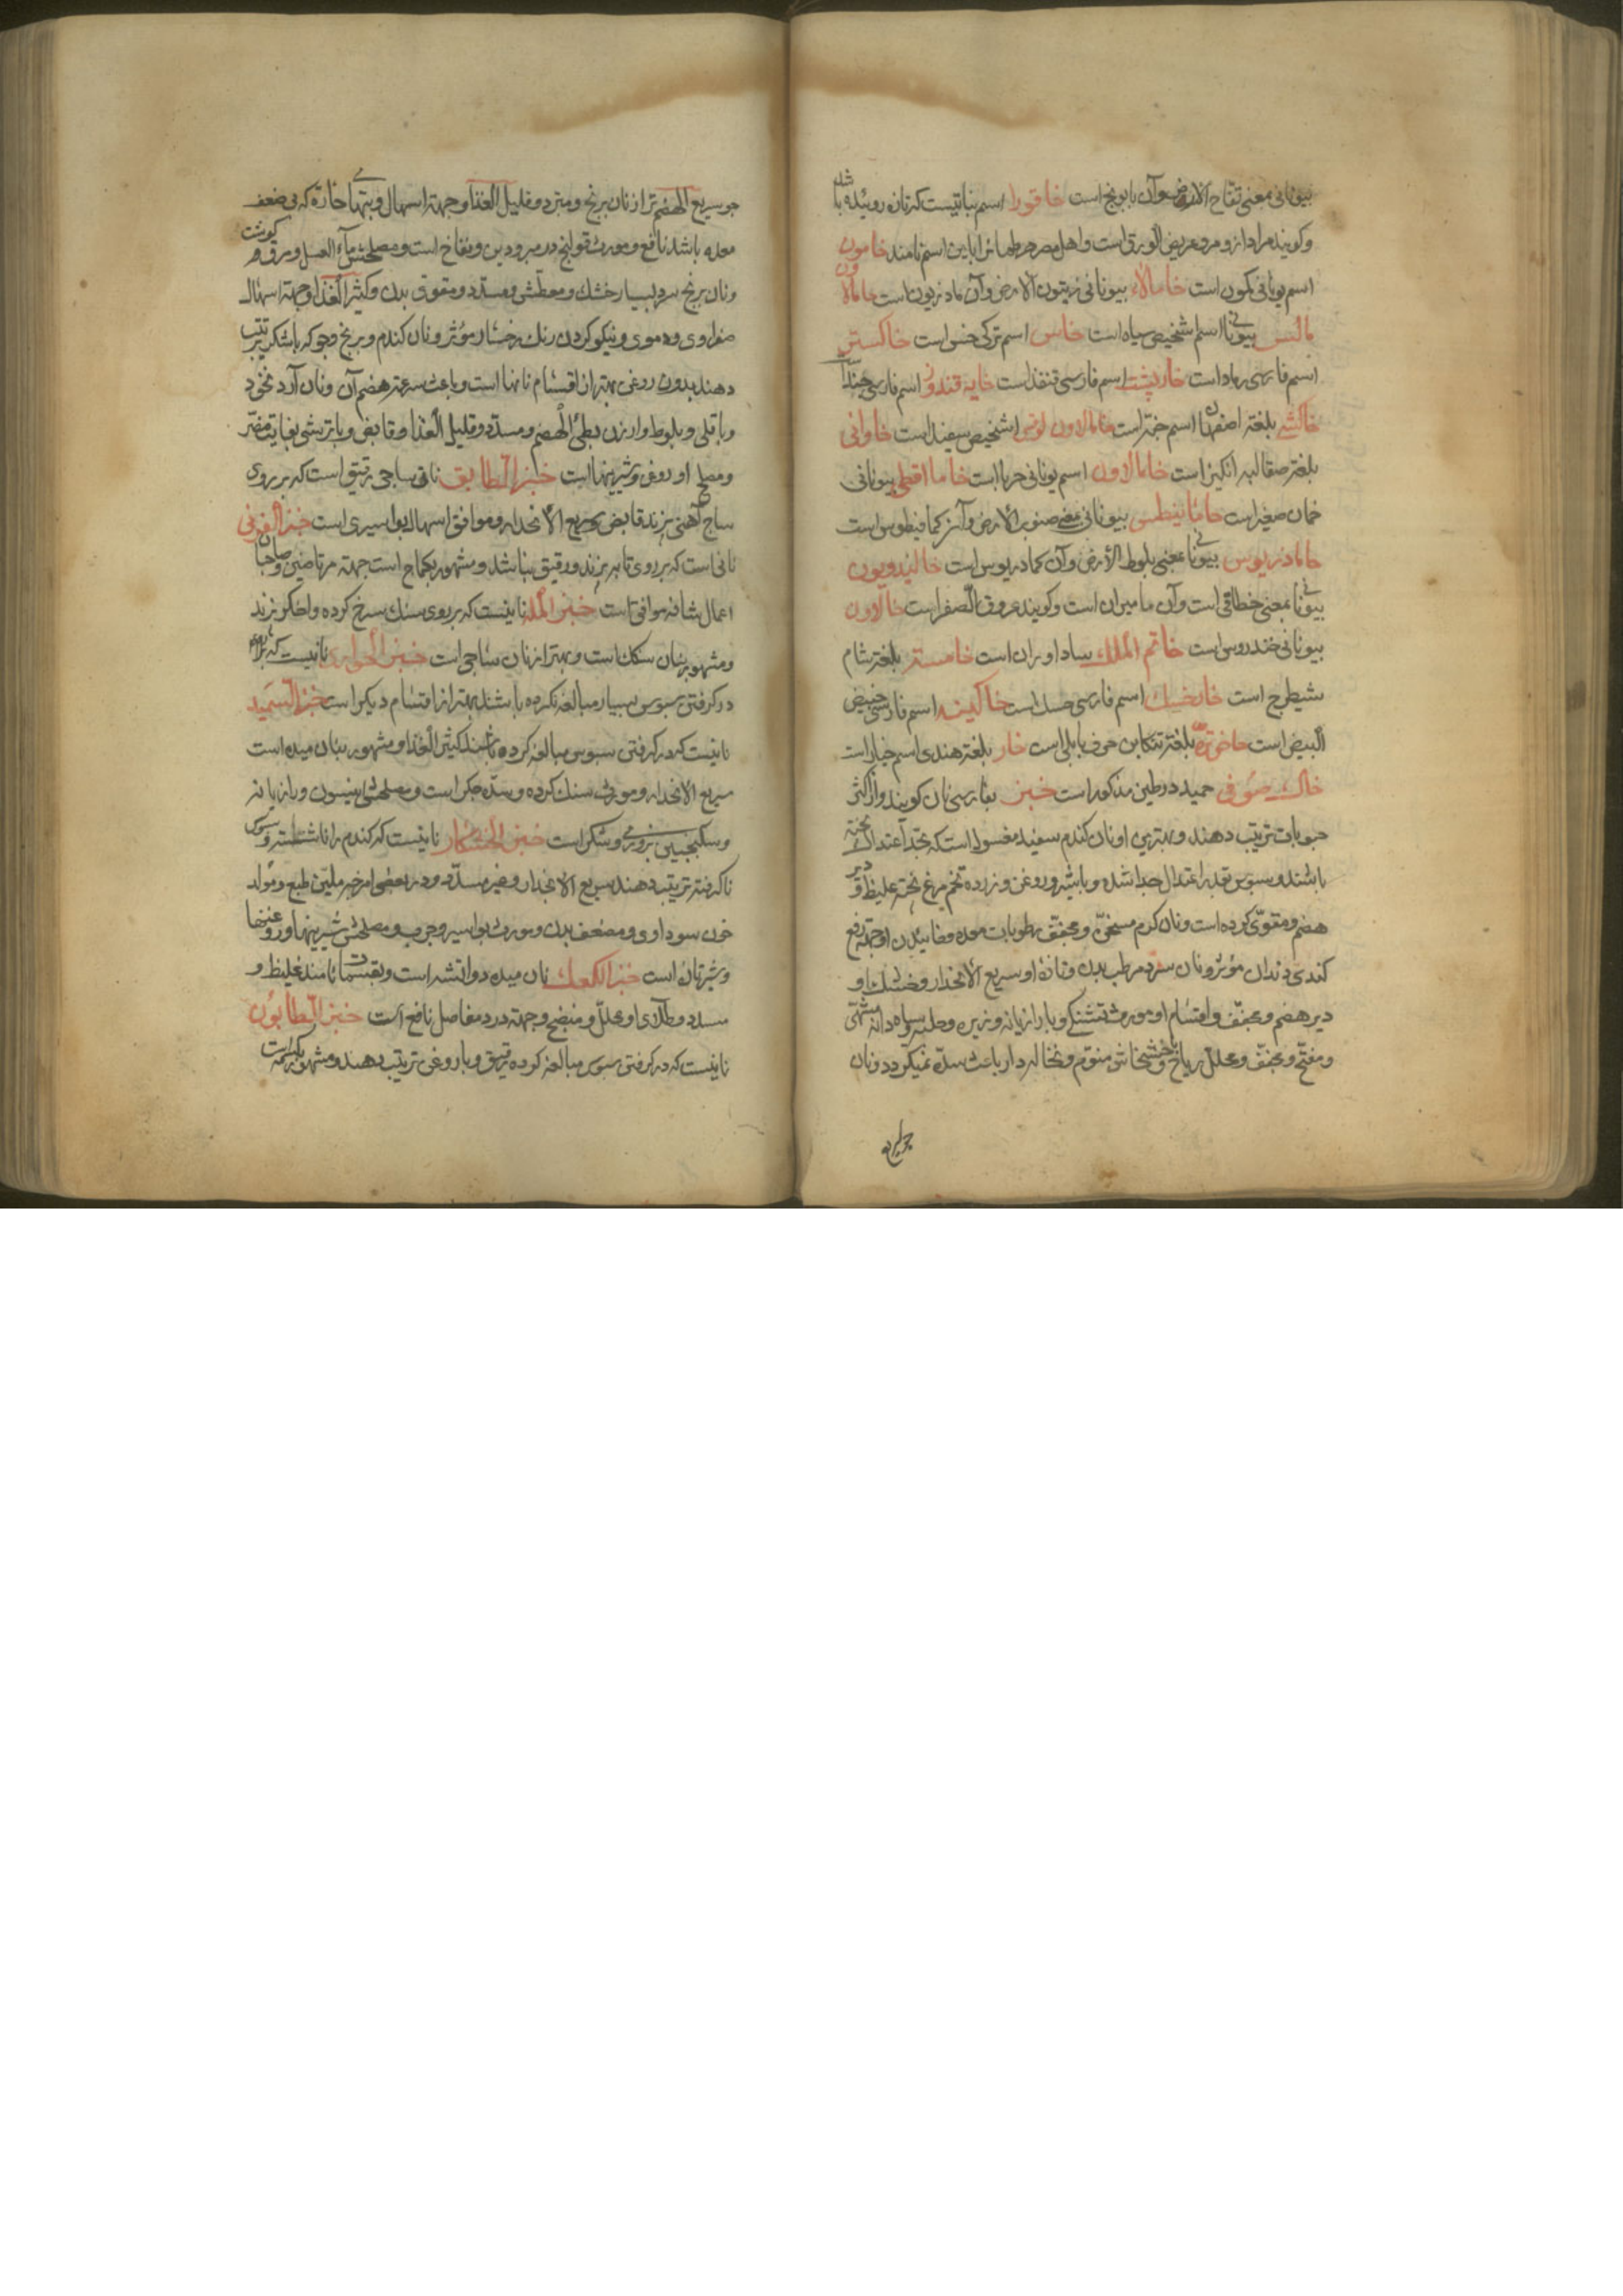 بیونانی بمعنی تفاح الارض و آن بابونج است خاقورا اسم نباتیست که تازه روئیده باشد
و کویند مراد از و مرو عریض الورق است و اهل مصر را باین اسم نامند خامون
اسم یونانی کمون است خامالاء بیونانی زیتون الارض و آن مادزیون است خامالاون
مالس بیونانی اسم شخیص سیاه است خاس اسم ترکی خس است خاکستر
اسم فارسی رماد است خارپشت اسم فارسی قنفذ است خایه قندوز اسم فارسی
خاکشی بلغة اصفهان اسم خبه است خامالاون لوقس اشخیص سفید است خاوانی
بلغة صقالبه است خامالاون اسم یونانی حربا است خاما اقطی بیونانی
خمان صغیر است خامانیطس بیونانی بمعنی صنوبر الارض و آنرا کمافیطوس است
خامادریوس بیونانی بمعنی بلوط الأرض و آن کمادریوس است خالیدونیون
بیونانی بمعنی خطاقی است و آن مامیران است و کویند عروق الصفر است خالاون
بیونانی خندروس است خاتم الملک ساداوران است خامستر بلغة شام
شیطرج است خارخسک اسم فارسی حسک است خاکینه اسم فارسی خبیص
البیض است بلغة تنکابن حرف بابلی است خار بلغة هندی اسم خیار است
خاک صوفی حمید در طین مذکور است خبز بفارسی نان کویند و از اکثر
حبوبات ترتیب دهند و بهترین او نان کندم سفید مغسول است که بحد اعتدال پخته
باشند و سبوس بقدر اعتدال جدا شده و با شیر و روغن و زرده تخم مرغ پخته غلیظ و دیر
هضم و مقوی کرده است و نان کرم مسخن و مجفف رطوبات معده و خائیدن او جهة رفع
کندی دندان مؤثر و نان سرد مرطب بدن و تازهٔ او سریع الانحدار و خشک او
دیر هضم و مجفف و اقسام او مورث تشنکی و با رازیانه و زیره و حلبه و سیاه دانه مشهی
و مفتح و مجفف و محلل ریاح و با خشخاش منوم و نخاله دار باعث سده نمیکردد و نان
جو سریع الهضم تر از نان برنج و مبرد و قلیل الغذا و جهة اسهال و تبهای حاره که بی ضعف
معده باشد نافع و مورث قولنج در مبرودین و نفاخ است و مصلحش ماء العسل و مرق کوشت
و نان برنج سرد بسیار خشک و معطش و مسدد و مقوی بدن و کثیر الغذا و جهة اسهال
صفراوی و دموی و نیکو کردن رنک رخسار مؤثر و نان کندم و برنج و جو که با شکر ترتیب
دهند بدون روغن بهتر از اقسام نانها است و باعث سرعة هضم آن و نان آرد نخود
و باقلی و بلوط و ارزن بطئ الهضم و مسدد و قلیل الغذا و قابض و با ترشی بغایت مضر
و مصلح او روغن و شیرینها است خبز الطابق نانی ساجی رقیق است که بر روی
ساج آهنی پزند قابض و سریع الانحدار و موافق اسهال بواسیری است خبز الفرنی
نانی است که بر روی تابه پزند و رقیق نباشد و مشهور بکماج است جهة مرتاضین و صاحبان
اعمال شاقه موافق است خبز المله نانیست که بر روی سنک سرخ کرده و اخکر پزند
و مشهور بنان سنکک است و بهتر از نان ساجی است خبز الحواری نانیست که
در کرفتن سبوس بسیار مبالغه نکرده باشند بهتر از اقسام دیکر است خبز السمید
نانیست که در کرفتن سبوس مبالغه کرده باشند کثیر الغذا و مشهور بنان میده است
سریع الانحدار و مورث سنک کرده و سده جکر است و مصلحش انیسون و رازیانه
و سکنجبین بزوری و شکر است خبز الخشکار نانیست که کندم را ناشسته و سبوس
ناکرفته ترتیب دهند سریع الانحدار و غیر مسدد و در بعضی امزجه ملین طبع و مولد
خون سوداوی و مضعف بدن و مورث بواسیر و جرب و مصلحش شیرینها و روغنها
و شیر تازه است خبز الکعک نان میده دو آتشه است و بقسمات نامند غلیظ و
مسدد و طلای او محلل و منضج و جهة درد مفاصل نافع است خبز الطابون
نانیست که در کرفتن سبوس مبالغه کرده رقیق و با روغن ترتیب دهند و مشهور
جو سریع